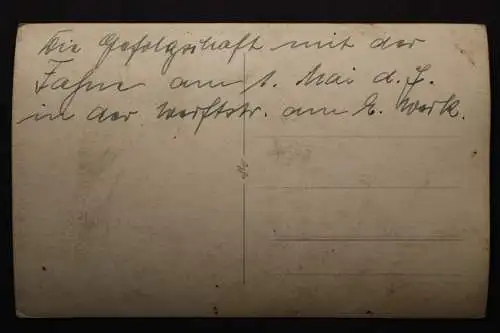 Die Gefolgschaft mit der
Fahne am 1. Mai d. J.
in der Werftstr. am E. Werk.